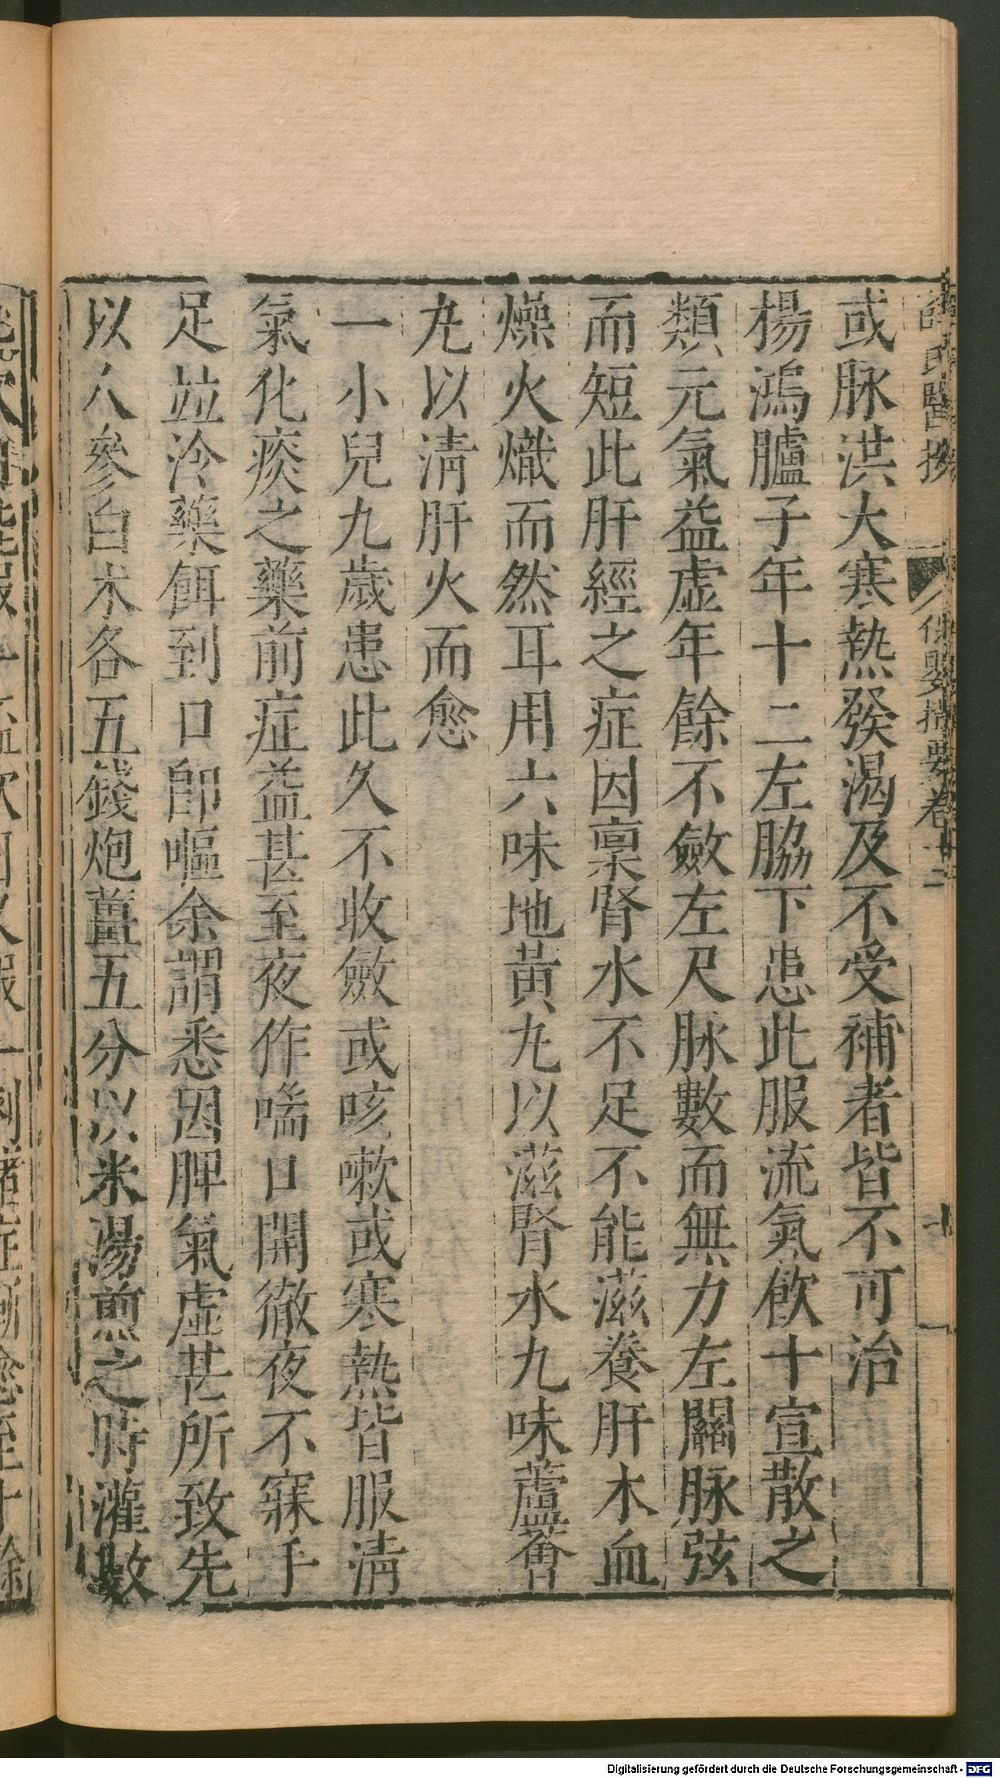 薛氏醫按 保嬰撮要卷十二
或脉洪大寒熱發渴及不受補者皆不可治
楊鴻臚子年十二左脇下患此服流氣飲十宣散之
類元氣益虛年餘不斂左尺脉數而無力左關脉弦
而短此肝經之症因稟腎水不足不能滋養肝木血
燥火熾而然耳用六味地黃丸以滋腎水九味蘆薈
丸以清肝火而愈
一小兒九歲患此久不收斂或咳嗽或寒熱皆服清
氣化痰之藥前症益甚至夜作喘口開徹夜不寐手
足並冷藥餌到口卽嘔余謂悉因脾氣虛甚所致先
以人參白朮各五錢炮薑五分以米湯煎之時灌數
Digitalisierung gefördert durch die Deutsche Forschungsgemeinschaft - DFG